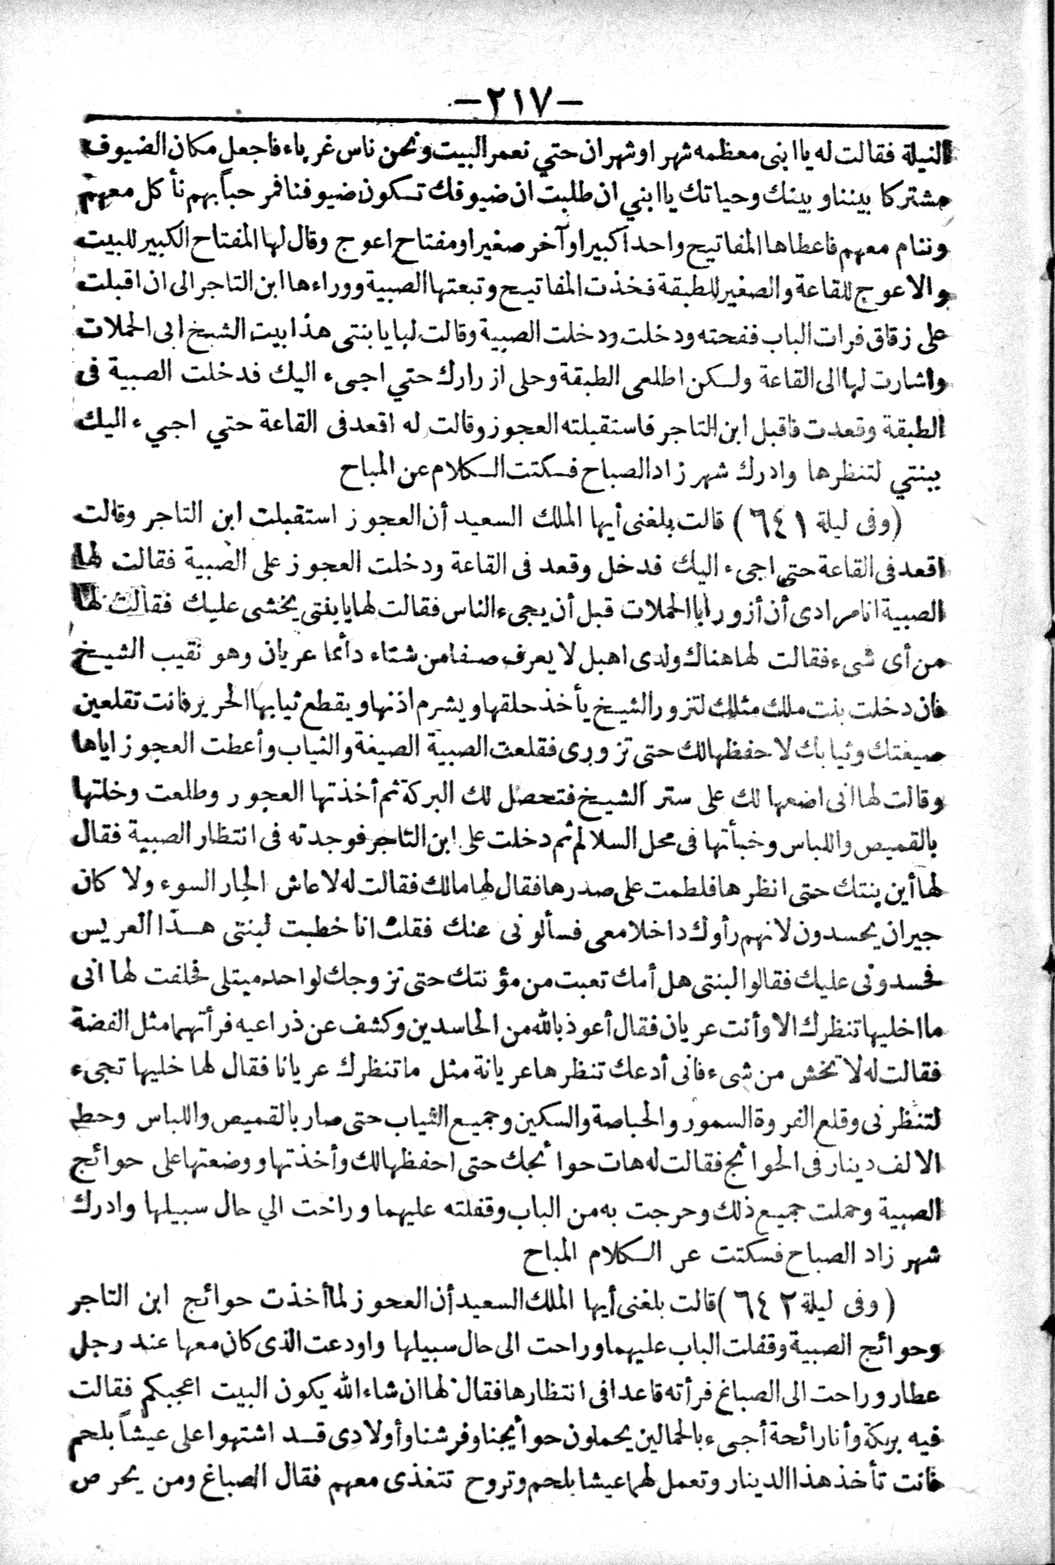 -٢١٧-
النيلة فقالت له يا ابنى معظمه شهر اوشهران حتي نعمر البيت ونحن ناس غرباء فاجعل مكان الضيوف
مشتركا بيننا وبينك وحياتك يا ابني ان طلبت ان ضيوفك تسكون ضيوفنا فمر حبا بهم نأكل معهم
وننام معهم فاعطاها المفاتيح واحدا كبيرا وآخر صغيرا ومفتاح اعوج وقال لها المفتاح الكبير للبيت
والاعوج للقاعة والصغير للطبقة فخذت المفاتيح وتبعتها الصبية ووراءها ابن التاجر الى ان اقبلت
على زقاق فرات الباب ففحته ودخلت ودخلت الصبية وقالت لها يا بنتى هذا بيت الشيخ ابى الحملات
واشارت لها الى القاعة ولسكن اطلعى الطبقة وحلى ازرارك حتي اجىء اليك فدخلت الصبية فى
الطبقة وقعدت فاقبل ابن التاجر فاستقبلته العجوز وقالت له اقعد فى القاعة حتي اجيء اليك
ببنتي لتنظرها وادرك شهر زاد الصباح فسكتت السكلام عن المباح
(وفى ليلة ٦٤١) قالت بلغنى أيها الملك السعيد أن العجوز استقبلت ابن التاجر وقالت
اقعد فى القاعة حتي اجىء اليك فدخل وقعد فى القاعة ودخلت العجوز على الصبية فقالت لها
الصبية انا مرادى أن أزور ابا الحملات قبل أن يجىء الناس فقالت لها يا بنتى يخشى عليك فقالت لها
من أى شىء فقالت لها هناك ولدى اهبل لا يعرف صفا من شتاء دائما عريان وهو نقيب الشيخ
فان دخلت بنت ملك مثلك لتزور الشيخ يأخذ حلقها ويشرم اذنها ويقطع ثيابها الحرير فانت تقلعين
صيغتك وثيابك لا حفظها لك حتى تزورى فقلعت الصبية الصيغة والثياب وأعطت العجوز اياها
وقالت لها انى اضعها لك على ستر الشيخ فتحصل لك البركة ثم أخذتها العجوز وطلعت وخلتها
بالقميص واللباس وخبأتها فى محل السلالم ثم دخلت على ابن التاجر فوجدته فى انتظار الصبية فقال
لها أين بنتك حتى انظرها فلطمت على صدرها فقال لها مالك فقالت له لا عاش الجار السوء ولا كان
جيران يحسدون لانهم رأوك داخلا معى فسألونى عنك فقلت انا خطبت لبنتى هذا العريس
فحسدونى عليك فقالوا لبنتى هل أمك تعبت من مؤنتك حتى تزوجك لواحد مبتلى فحلفت لها انى
ما اخليها تنظرك الا وأنت عريان فقال أعوذ بالله من الحاسدين وكشف عن ذراعيه فرأتهما مثل الفضة
فقالت له لا تخش من شىء فانى أدعك تنظرها عريانة مثل ما تنظرك عريانا فقال لها خليها تجىء
لتنظرنى وقلع الفروة السمور والحياصة والسكين وجميع الثياب حتى صار بالقميص واللباس وحط
الالف دينار فى الحوائج فقالت له هات حوائجك حتى احفظها لك وأخذتها ووضعتها على حوائج
الصبية وحملت جميع ذلك وخرجت به من الباب وقفلته عليهما وراحت الي حال سبيلها وادرك
شهر زاد الصباح فسكتت عن السكلام المباح
(وفى ليلة ٦٤٢) قالت بلغنى أيها الملك السعيد أن العجوز لما أخذت حوائج ابن التاجر
وحوائج الصبية وقفلت الباب عليهما وراحت الى حال سبيلها واودعت الذى كان معها عند رجل
عطار وراحت الى الصباغ فرأته قاعدا فى انتظارها فقال لها ان شاء الله يكون البيت اعجبكم فقالت
فيه بركة وأنا رائحة أجىء بالحمالين يحملون حوائجنا وفرشنا وأولادى قد اشتهوا على عيشا بلحم
فانت تأخذ هذا الدينار وتعمل لهم اعيشا بلحم وتروح تتغذى معهم فقال الصباغ ومن يحرص